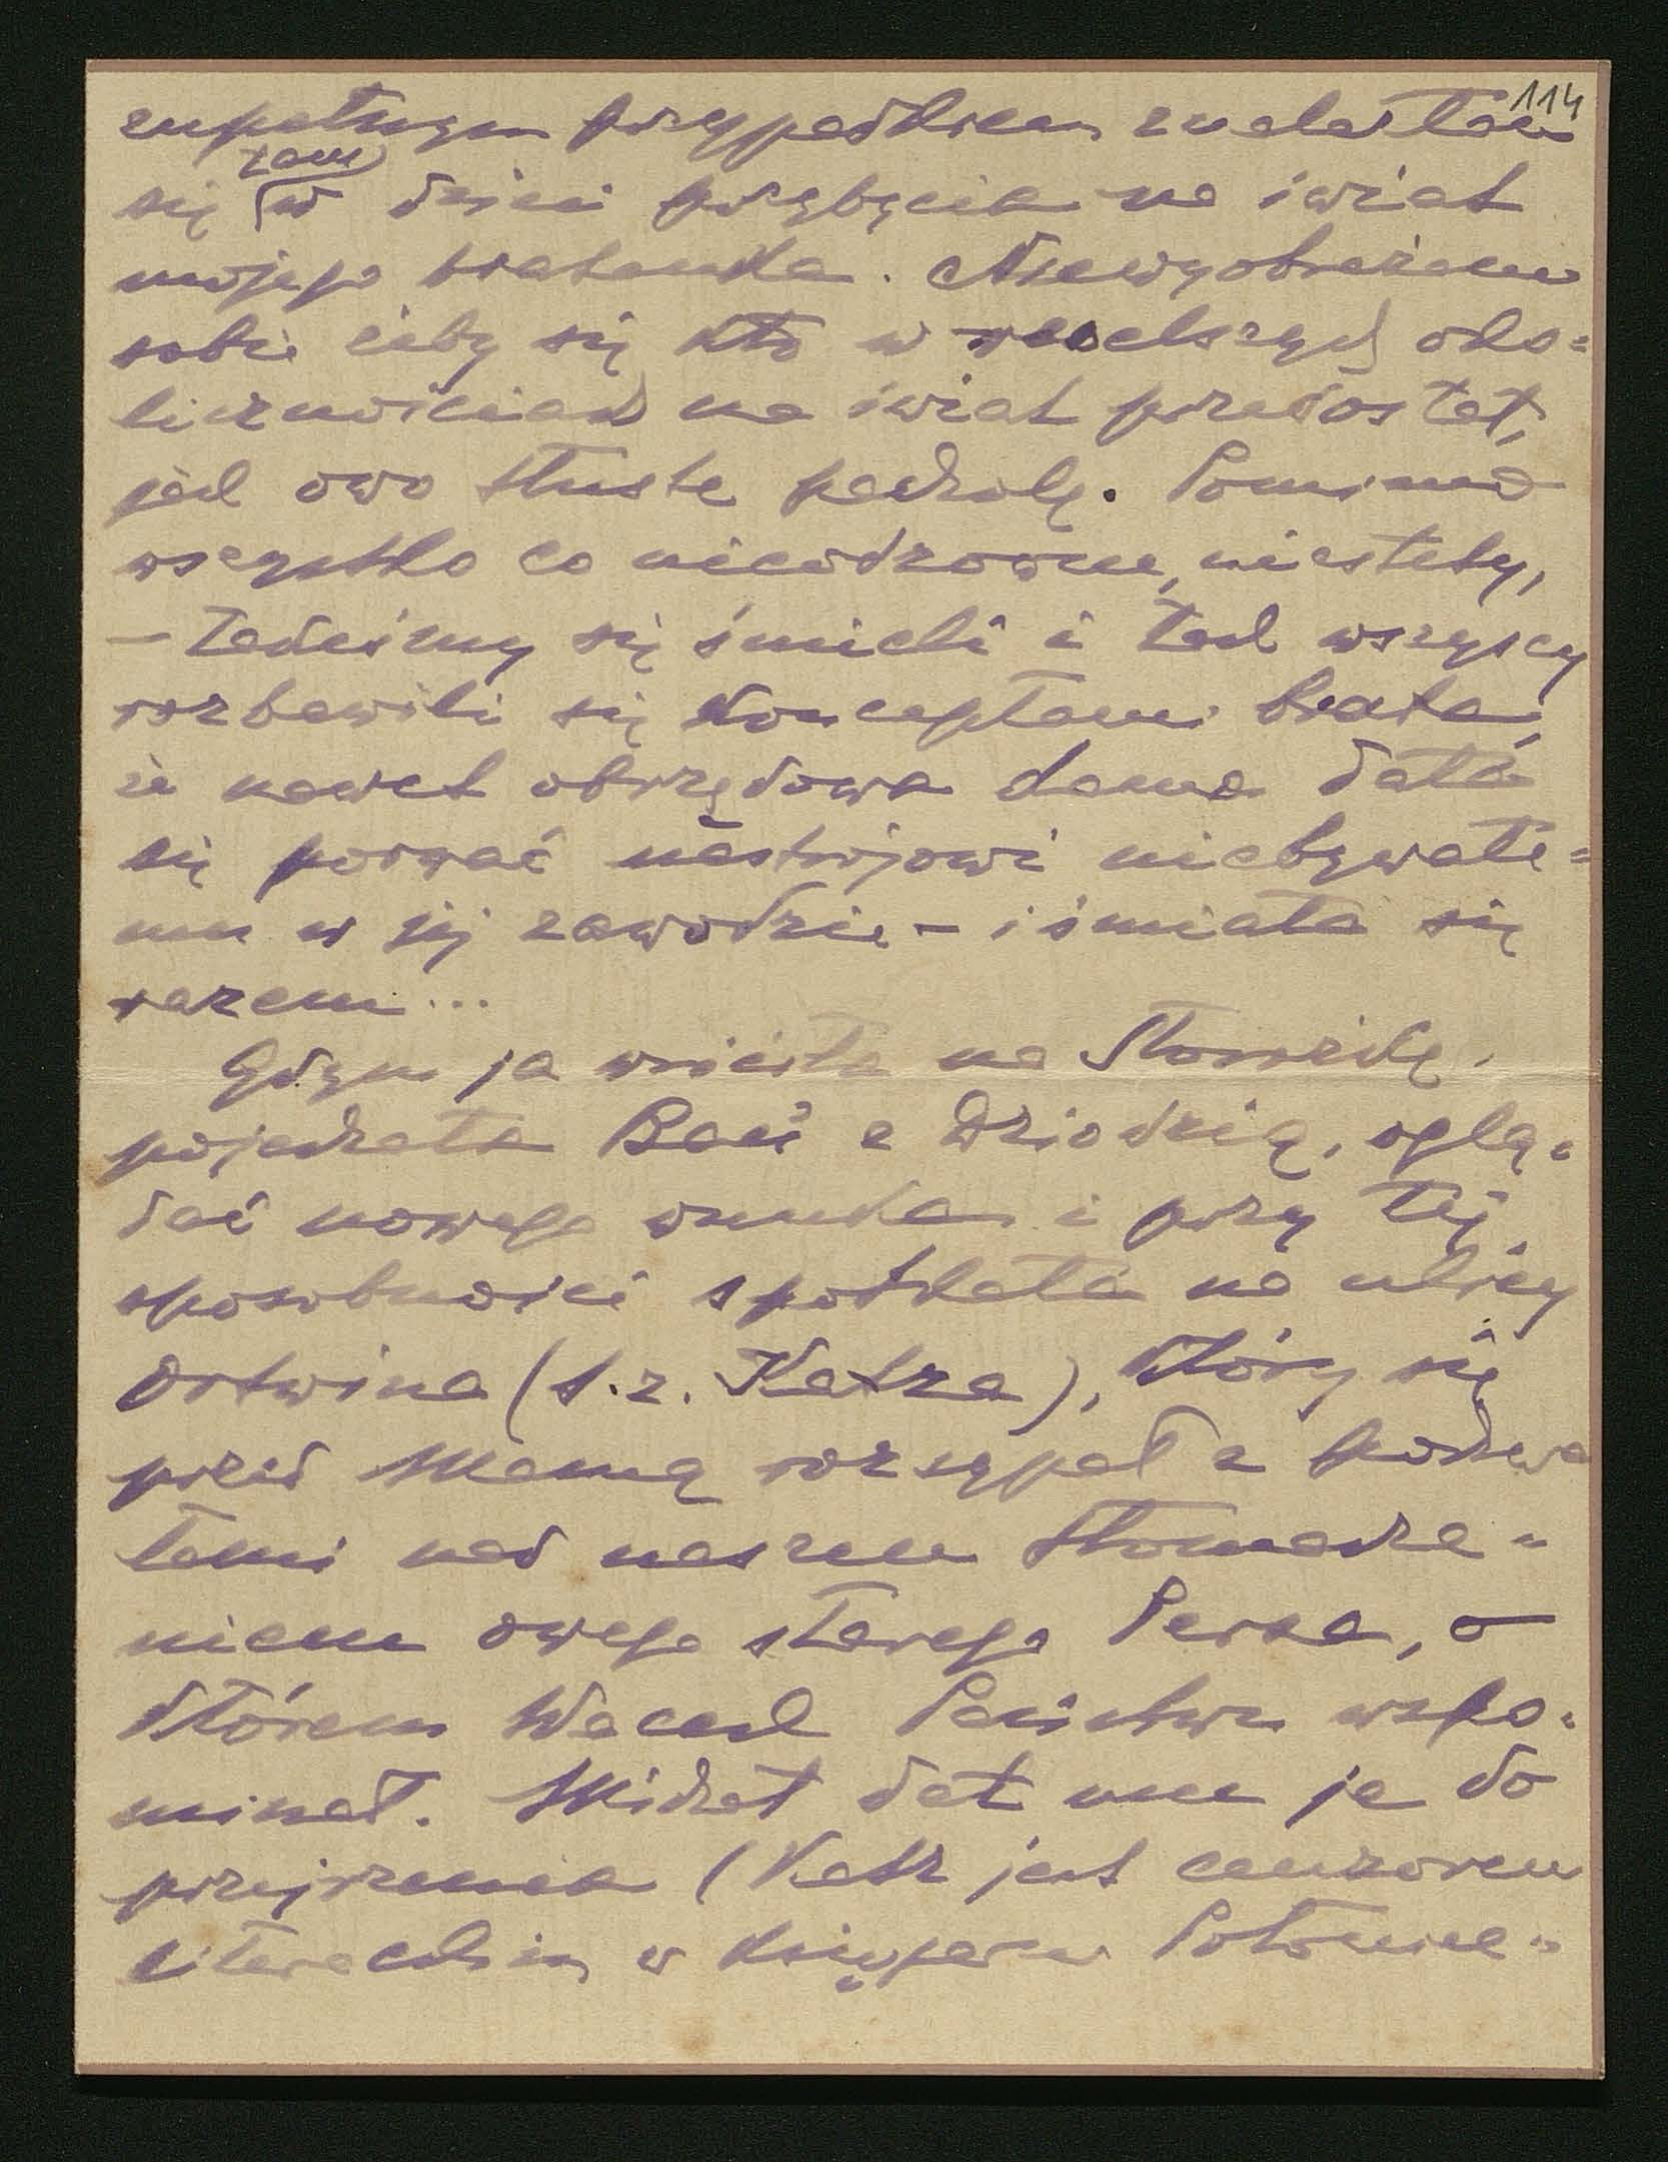 114
zupełnym przypadkiem znalazłam
się tam w dzień przybycia na świat
mojego bratanka. Niewyobrażam
sobie żeby się kto w weselszych oko=
licznościach na świat przedostał,
jak owo tłuste pacholę. Pomimo
wszystko co nieodzowne, niestety,
– takeśmy się śmieli i tak wszyscy
rozbawili się konceptami brata,
że nawet obrzędowa dama dała
się porwać nastrojowi niebywałe=
mu w jej zawodzie – i śmiała się
razem...
Gdym ja wróciła na Storożkę,
pojechała Bań z Dziodzią, oglą=
dać nowego wnuka i przy tej
sposobności spotkała na ulicy
Ortwina (t.z. Katza), który się
przed Mamą rozsypał z pochwa
łami nad naszem tłomacze=
niem owego starego Persa, o
którem Wacek Państwu wspo=
minał. Michał dał mu je do
przejrzenia (Katz jest cenzorem
literackim w księgarni Połonie=